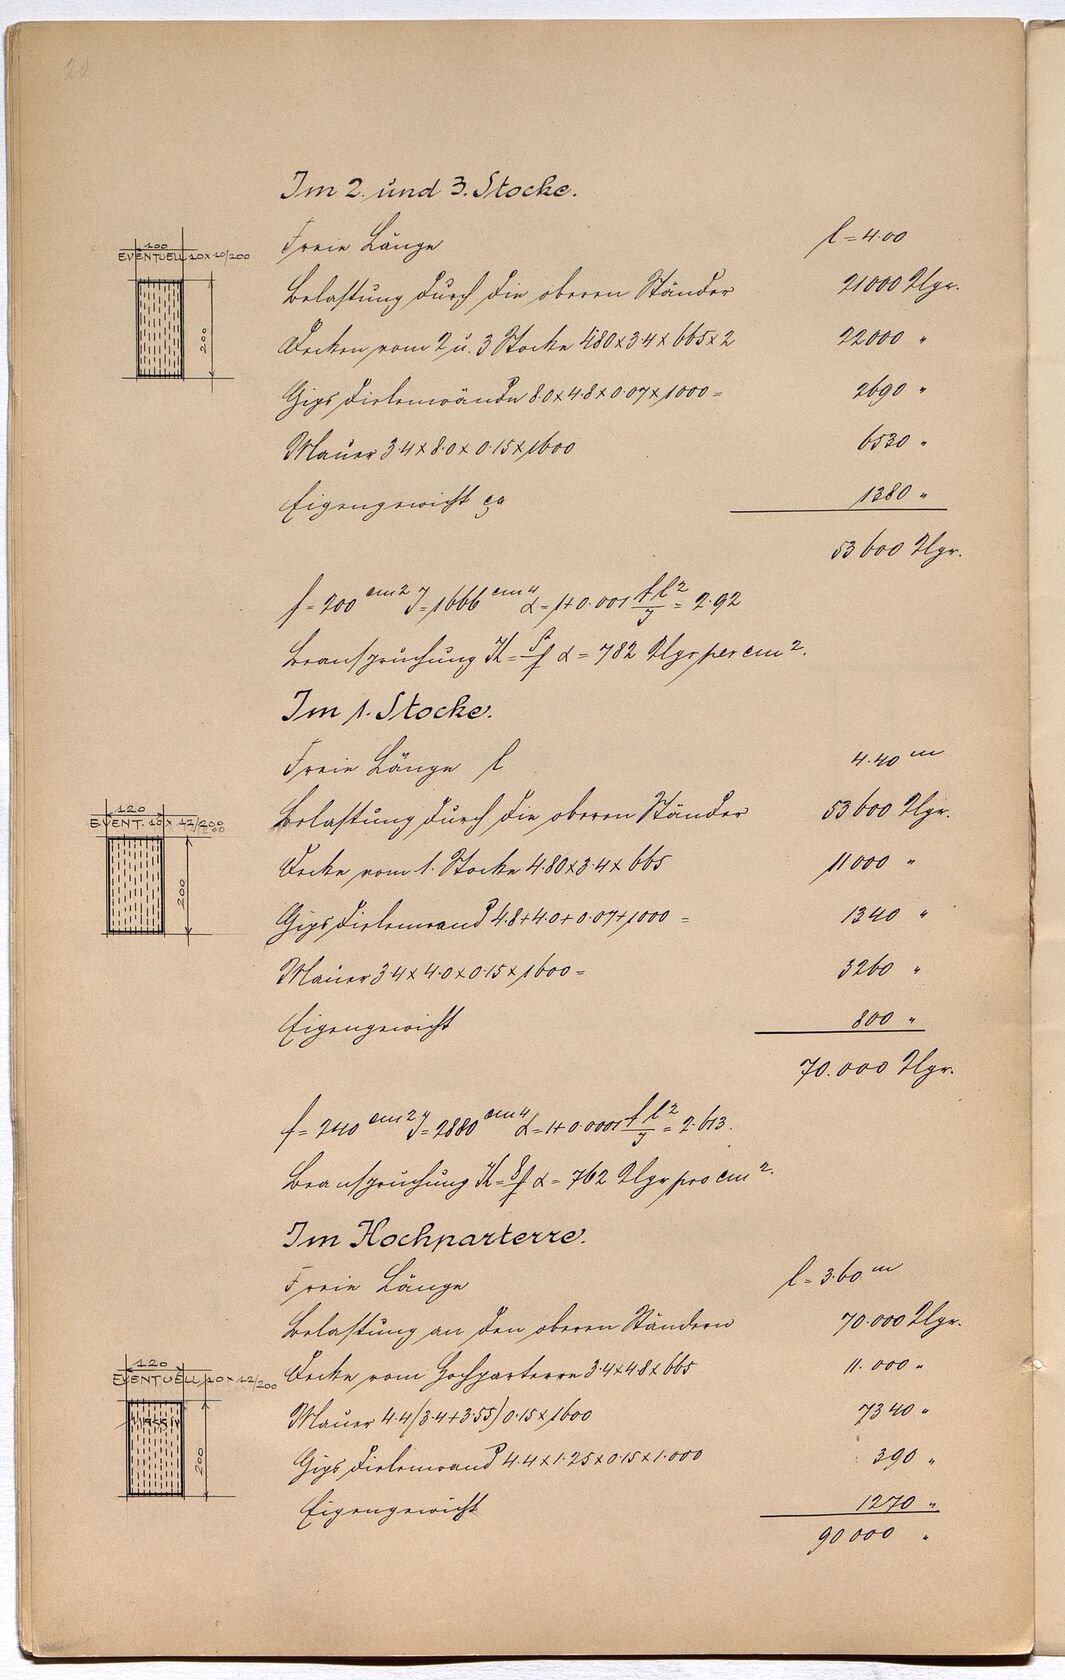 20
Im 2. und 3. Stocke.
Freie Länge l = 4.00
100
EVENTUELL 10 x 10/200
200
Belastung durch die oberen Ständer 21000 Klgr.
Decken vom 2 u. 3 Stocke 4.80 x 3.4 x 665 x 2 22000 "
Gips Dielenwände 8.0 x 4.8 x 0.07 x 1000 = 2690 "
Mauer 3.4 x 8.0 x 0.15 x 1600 6530 "
Eigengewicht ca 1380 "
53600 Klgr.
f = 200 cm² J = 1666 cm⁴ α = 1+0.001 f l²/J = 2.92
Beanspruchung K = P/f α = 782 Klgr per cm².
Im 1. Stocke.
Freie Länge l 4.40 m
120
EVENT. 10 x 12/200
200
Belastung durch die oberen Ständer 53600 Klgr.
Decke vom 1. Stocke 4.80 x 3.4 x 665 11000 "
Gips Dielenwand 4.8+4.0+0.07+1000 = 1340 "
Mauer 3.4 x 4.0 x 0.15 x 1600 = 3260 "
Eigengewicht 800 "
70.000 Klgr.
f = 240 cm² J = 2880 cm⁴ α = 1+0.0001 f l²/J = 2.613.
Beanspruchung K = P/f α = 762 Klgr pro cm².
Im Hochparterre.
Freie Länge l = 3.60 m
Belastung an den oberen Ständern 70.000 Klgr.
120
EVENTUELL 10 x 12/200
200
Decke vom Hochparterre 3.4 x 4.8 x 665 11.000 "
Mauer 4.4 (3.4+3.55) 0.15 x 1600 7340 "
Gips Dielenwand 4.4 x 1.25 x 0.15 x 1.000 390 "
Eigengewicht 1270 "
90000 "